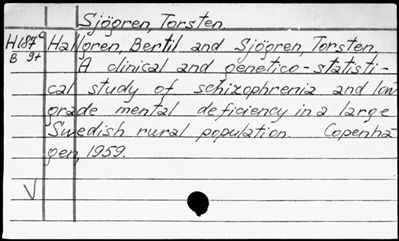 Sjögren, Torsten
H187 9 Hallgren, Bertil and Sjögren, Torsten
B 9+ A clinical and genetico-statisti-
cal study of schizophrenia and low
grade mental deficiency in a large
Swedish rural population. Copenha
gen, 1959.
V